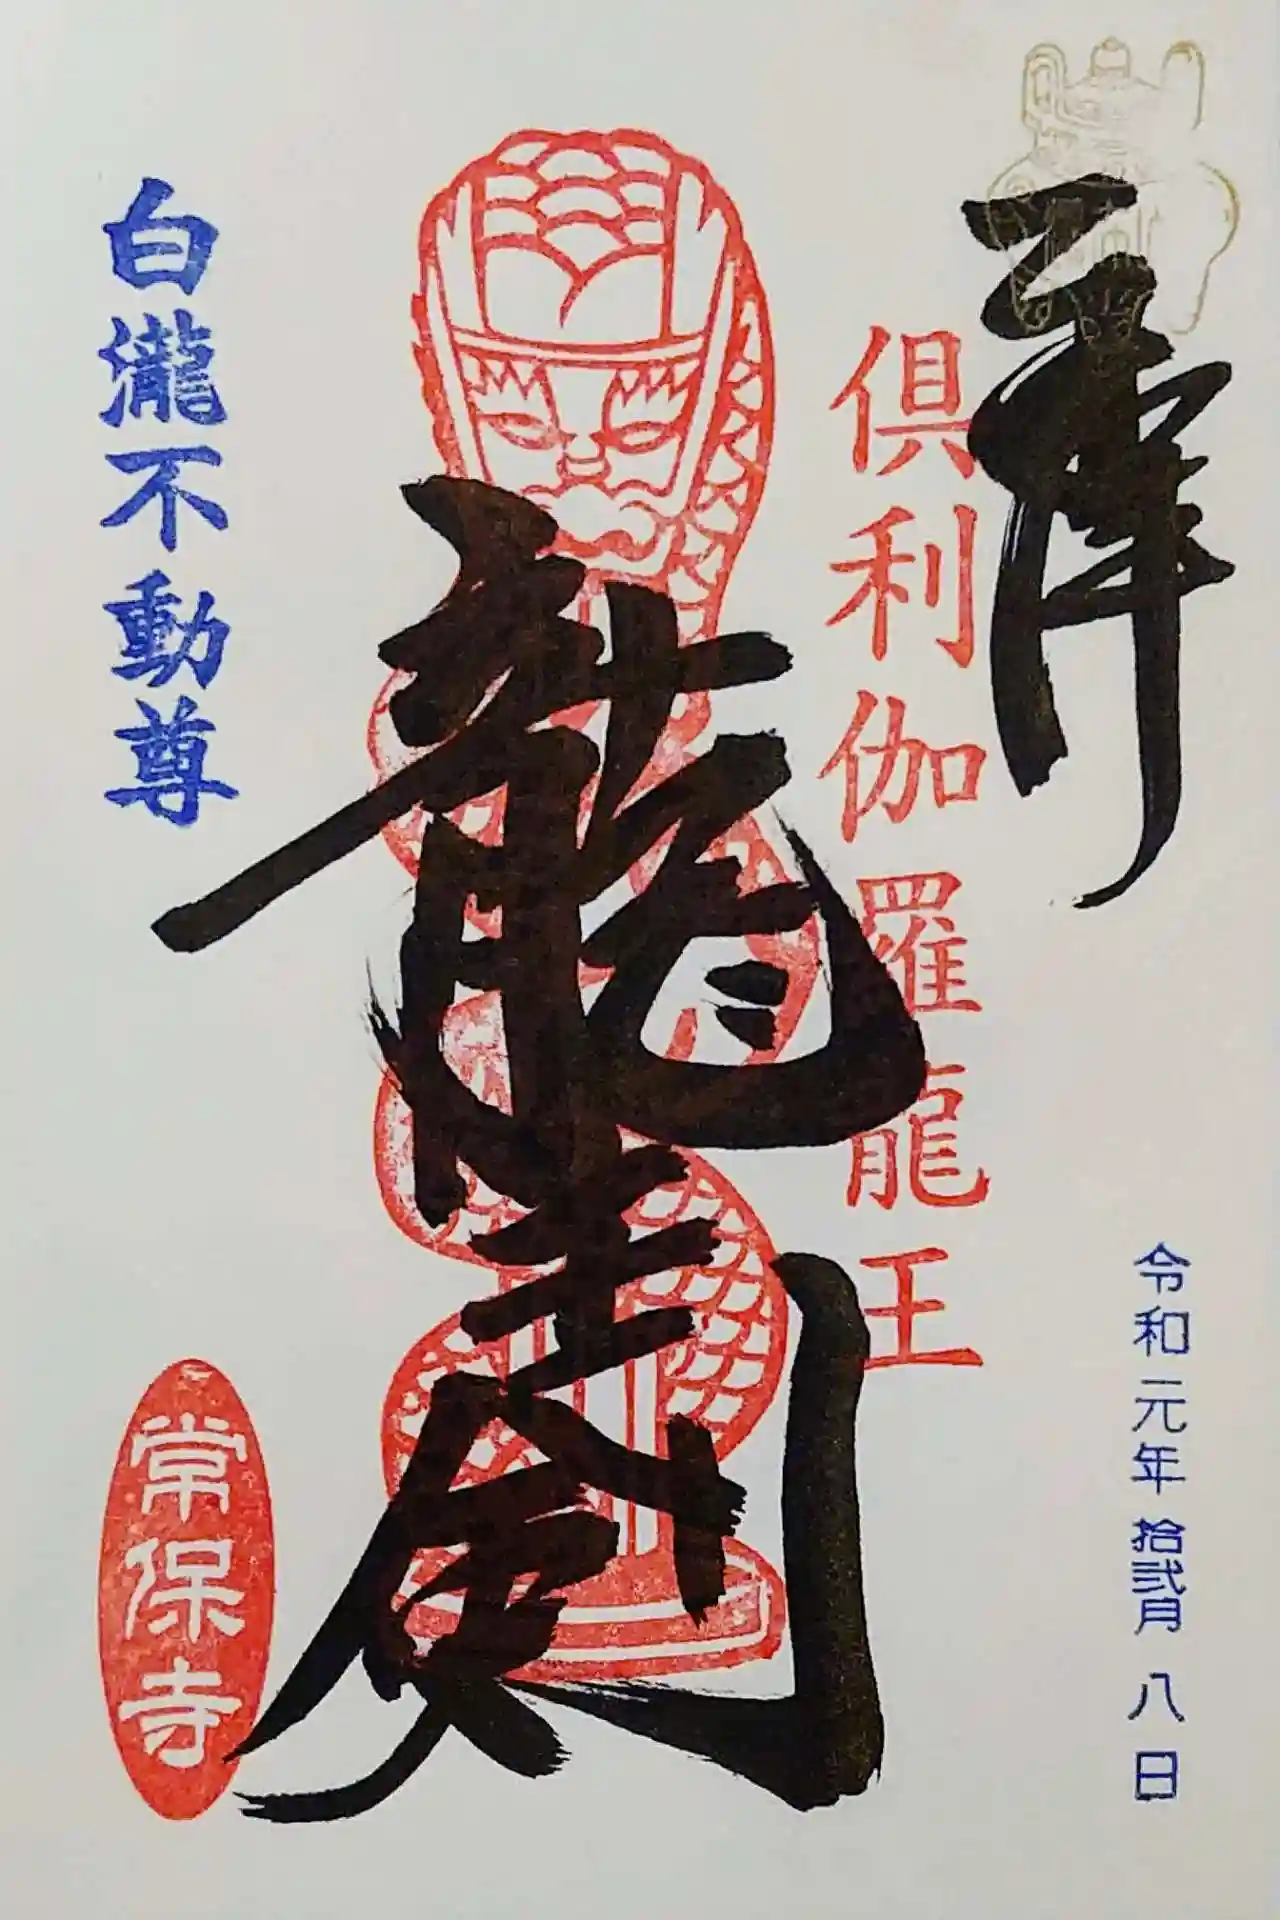 奉拝
倶利伽羅龍王
令和元年拾弐月八日
龍青劍
白瀧不動尊
常保寺